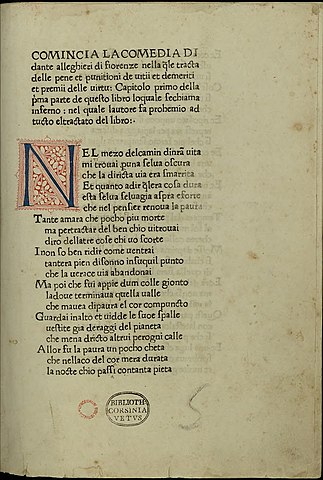 COMINCIA LA COMEDIA DI
dante alleghieri di fiorenze nella q̄le tracta
delle pene et punitioni de uitii et demeriti
et premii delle uirtu: Capitolo primo della
p̄ma parte de questo libro loquale sechiama
inferno: nel quale lautore fa prohemio ad
tucto eltractato del libro:·
NEL mezo delcamin dinr̄a uita
mi trouai puna selua oscura
che la diricta uia era smarrita
Et quanto adir q̄lera cosa dura
esta selua seluagia aspra eforte
che nel pensier renoua la paura
Tante amara che pocho piu morte
ma pertractar del ben chio uitrouai
diro dellaltre cose chi uo scorte
I non so ben ridir come uentrai
tantera pien disonno insuquil punto
che la uerace uia abandonai
Ma poi che fui appie dum colle gionto
ladoue terminaua quella ualle
che mauea dipaura el cor compuncto
Guardai inalto et uidde le sue spalle
uestite gia deraggi del pianeta
che mena dricto altrui perogni calle
Allor fu la paura un pocho cheta
che nellaco del cor mera durata
la nocte chio passi contanta pieta
BIBLIOTH
CORSINIA
VETVS